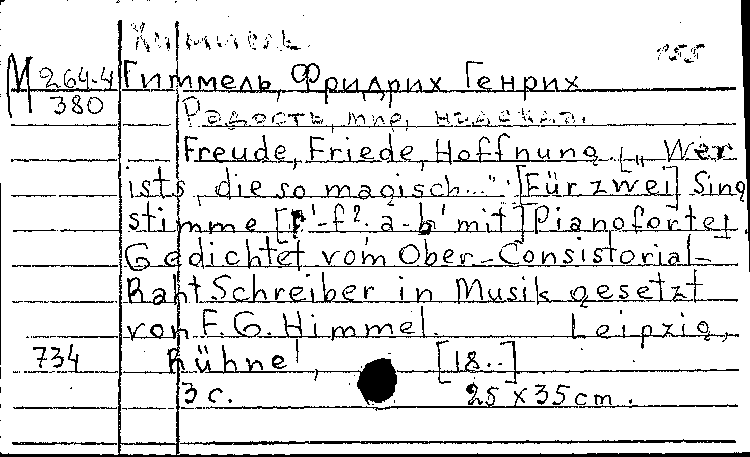 Химмель
155
М 264.4 Гиммель, Фридрих Генрих
380 Радость, мир, надежда.
Freude, Friede, Hoffnung. [„Wer
ists, die so magisch..." [Für zwei] Sing
stimme [f'-f²; a-b' mit] Pianoforte].
Gedichtet vom Ober-Consistorial-
Raht Schreiber in Musik gesetzt
von F. G. Himmel. Leipzig,
734 Kühnel, [18..]
3 с. 25 x 35 cm.